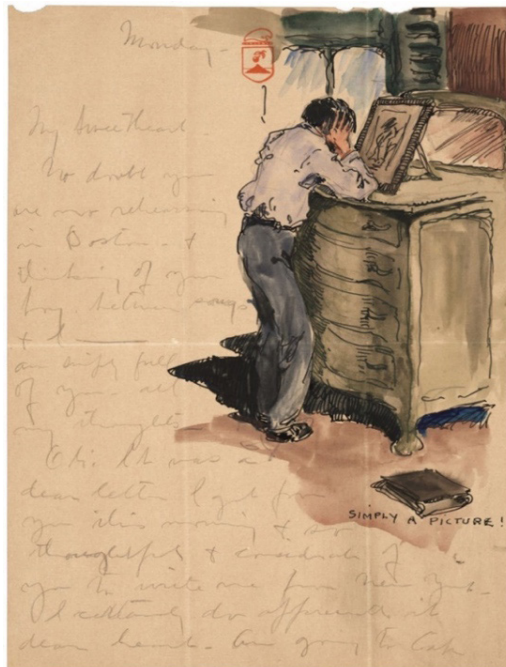 Monday -
My Sweetheart
No doubt you
are now rehearsing
in Boston - &
thinking of your
boy between songs
& I
am simply full
of you all
my thoughts
Oh. It was a
dear letter I got from
you this morning & so
thoughtful & considerate of
you to write me from New York.
I certainly do appreciate it
dear heart. Am going to
SIMPLY A PICTURE!